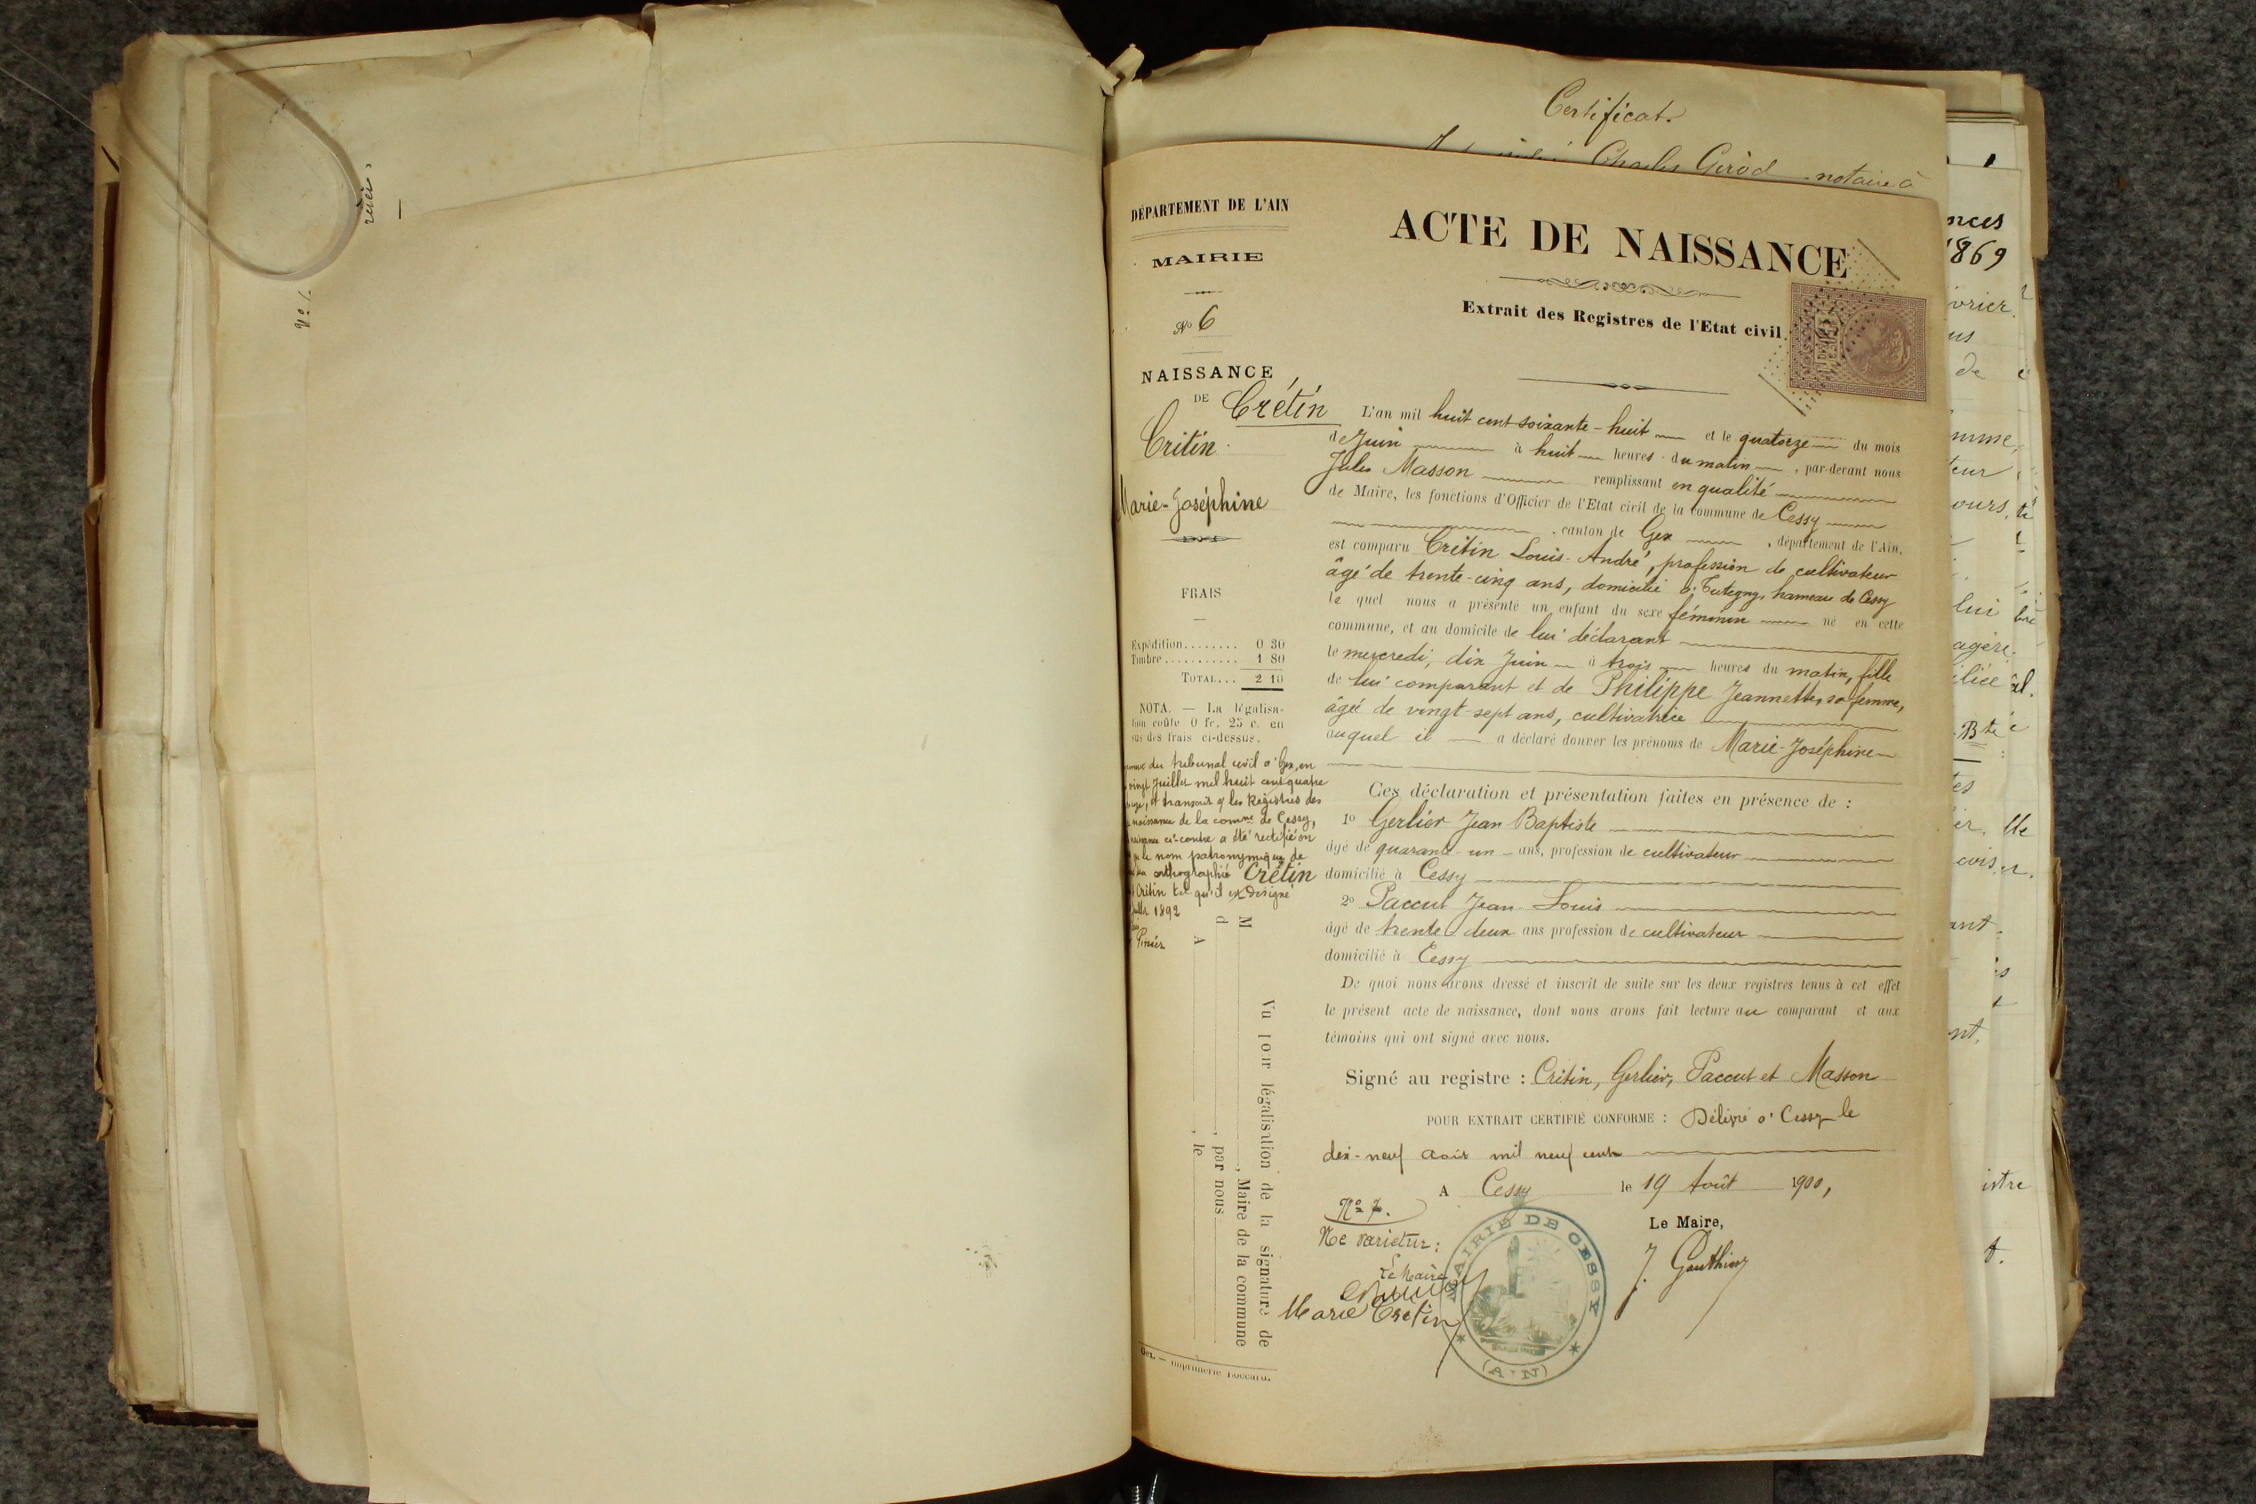 Certificat.
Charles Girod notaire à
DÉPARTEMENT DE L'AIN
MAIRIE
No 6
NAISSANCE
DE Crétin
Critin
Marie-Joséphine
FRAIS
Expédition........ 0 30
Timbre........... 1 80
TOTAL... 2 10
NOTA. — La légalisa-
tion coûte 0 fr. 25 c. en
sus des frais ci-dessus.
du tribunal civil à Gex, en
vingt Juillet mil huit cent quatre
et transcrit les Registres des
naissance de la comne de Cessy,
ci-contre a été rectifié en
le nom patronymique de
orthographié Crétin
Critin tel qu'il est désigné
1892
M , Maire de la commune
d , par nous
A , le
Vu pour légalisation de la signature de
Gex. — Imprimerie
ACTE DE NAISSANCE
Extrait des Registres de l'Etat civil
L'an mil huit cent soixante-huit et le quatorze du mois
de Juin à huit heures du matin, par-devant nous
Jules Masson remplissant en qualité
de Maire, les fonctions d'Officier de l'Etat civil de la commune de Cessy
, canton de Gex , département de l'Ain,
est comparu Critin Louis-André, profession de cultivateur
âgé de trente-cinq ans, domicilié à Tutegny, hameau de Cessy
le quel nous a présenté un enfant du sexe féminin né en cette
commune, et au domicile de lui déclarant
le mercredi, dix Juin à trois heures du matin, fille
de lui comparant et de Philippe Jeannette, sa femme,
âgée de vingt-sept ans, cultivatrice
auquel il a déclaré donner les prénoms de Marie-Joséphine
Ces déclaration et présentation faites en présence de :
1o Gerlier Jean Baptiste
âgé de quarante-un ans, profession de cultivateur
domicilié à Cessy
2o Paccut Jean-Louis
âgé de trente-deux ans profession de cultivateur
domicilié à Cessy
De quoi nous avons dressé et inscrit de suite sur les deux registres tenus à cet effet
le présent acte de naissance, dont nous avons fait lecture au comparant et aux
témoins qui ont signé avec nous.
Signé au registre : Critin, Gerlier, Paccut et Masson
POUR EXTRAIT CERTIFIÉ CONFORME : Délivré à Cessy le
dix-neuf août mil neuf cent
A Cessy le 19 Août 1900,
No 7.
Ne varietur :
Le Maire
Marie Cretin
Le Maire,
J. Gauthier
MAIRIE DE CESSY
(AIN)
1869